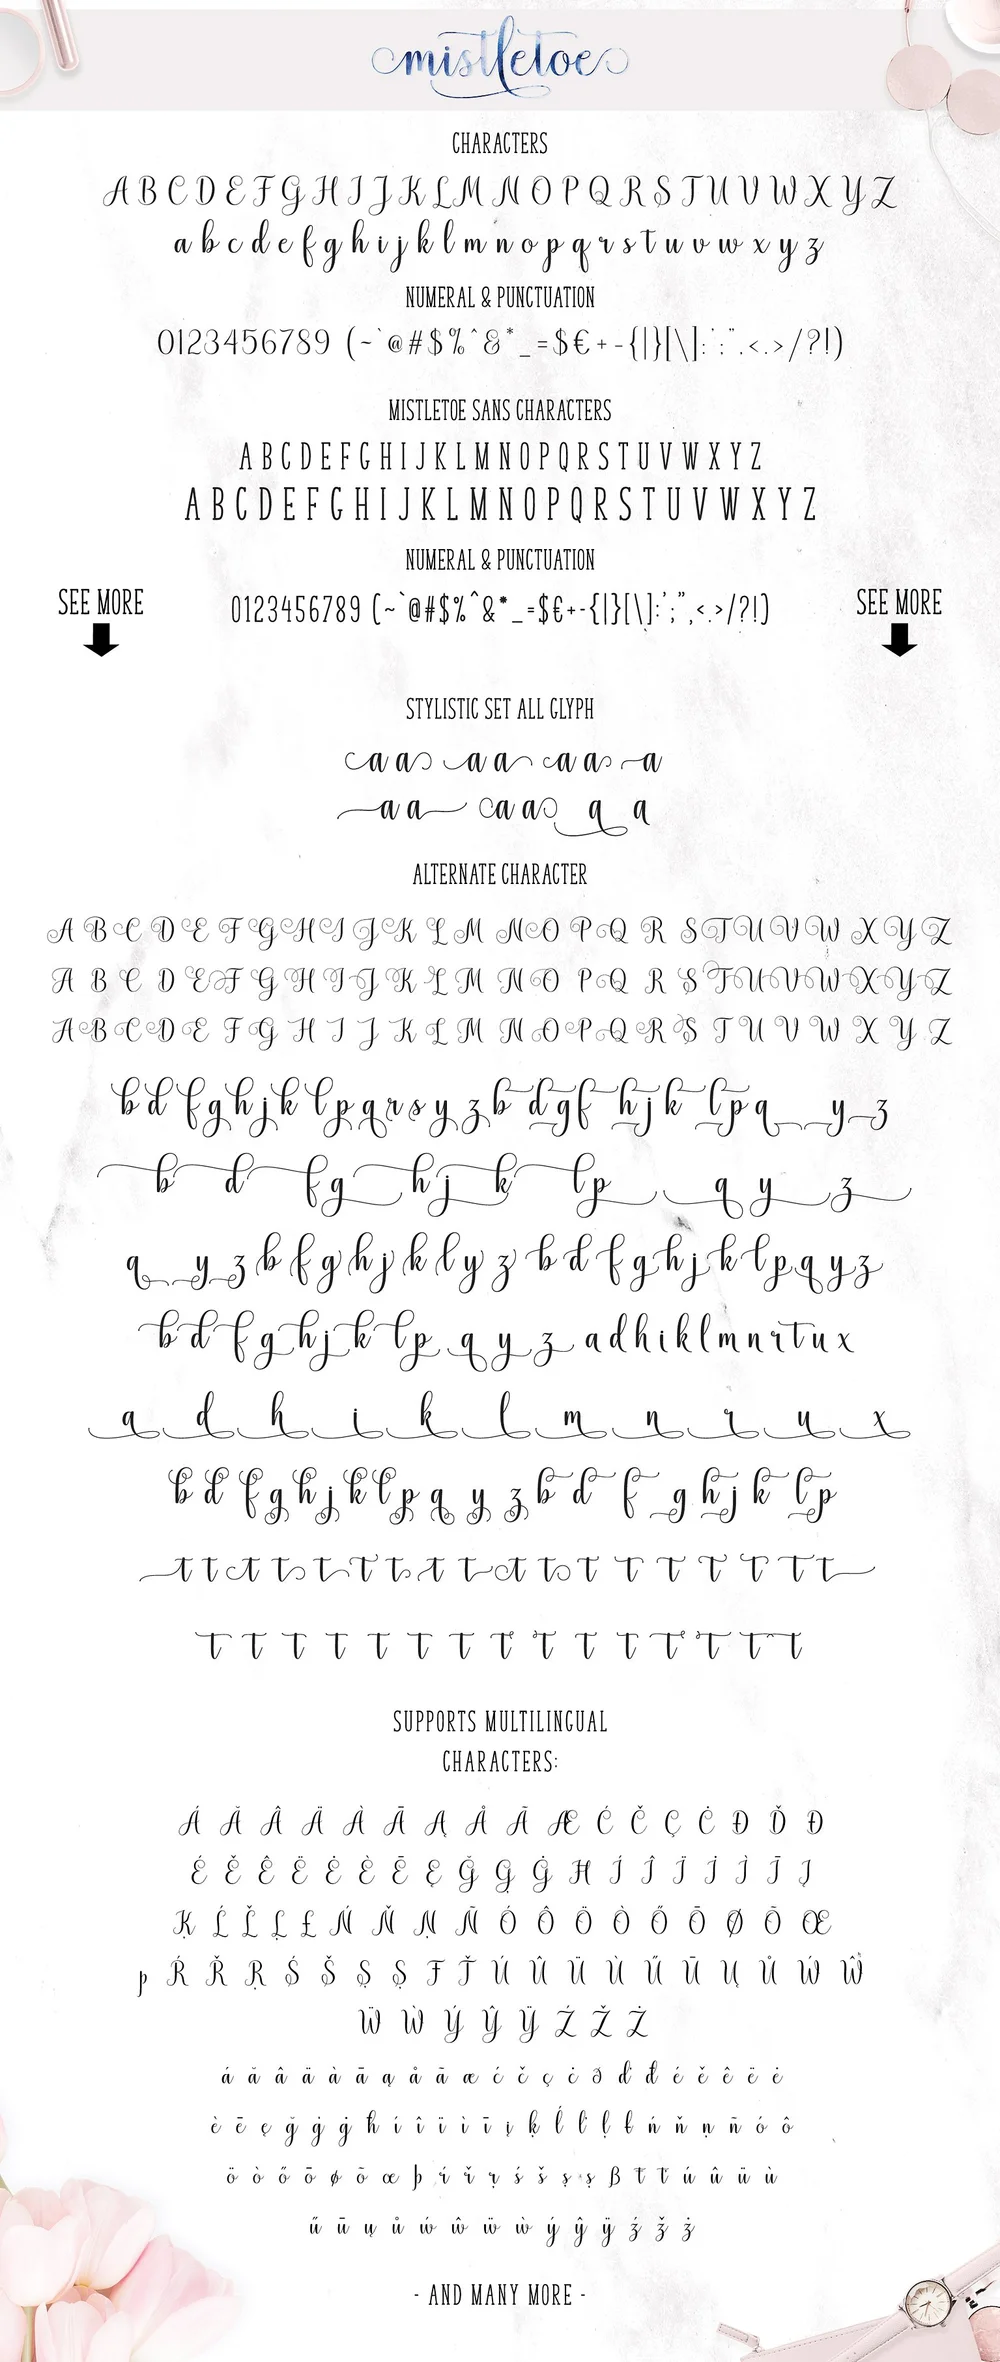 mistletoe
CHARACTERS
A B C D E F G H I J K L M N O P Q R S T U V W X Y Z
a b c d e f g h i j k l m n o p q r s t u v w x y z
NUMERAL & PUNCTUATION
0123456789 (~`@#$%^&*_=$€+-{|}[\]:';",<.>/?!)
MISTLETOE SANS CHARACTERS
A B C D E F G H I J K L M N O P Q R S T U V W X Y Z
A B C D E F G H I J K L M N O P Q R S T U V W X Y Z
NUMERAL & PUNCTUATION
SEE MORE
0123456789 (~`@#$%^&*_=$€+-{|}[\]:';",<.>/?!)
SEE MORE
STYLISTIC SET ALL GLYPH
a a a a a a a
a a a a a a
ALTERNATE CHARACTER
A B C D E F G H I J K L M N O P Q R S T U V W X Y Z
A B C D E F G H I J K L M N O P Q R S T U V W X Y Z
A B C D E F G H I J K L M N O P Q R S T U V W X Y Z
b d f g h j k l p q r s y z b d g f h j k l p q y z
b d f g h j k l p q y z
q y z b f g h j k l y z b d f g h j k l p q y z
b d f g h j k l p q y z a d h i k l m n r t u x
a d h i k l m n r u x
b d f g h j k l p q y z b d f g h j k l p
t t t t t t t t t t t t t t t t t
t t t t t t t t t t t t t t
SUPPORTS MULTILINGUAL
CHARACTERS:
Á Ă Â Ä À Ā Ą Å Ã Æ Ć Č Ç Ċ Đ Ď Ð
É Ě Ê Ë Ė È Ē Ę Ğ Ģ Ġ Ħ Í Î Ï İ Ì Ī Į
Ķ Ĺ Ľ Ļ Ł Ń Ň Ņ Ñ Ó Ô Ö Ò Ő Ō Ø Õ Œ
Þ Ŕ Ř Ŗ Ś Š Ş Ș Ŧ Ť Ú Û Ü Ù Ű Ū Ų Ů Ẃ Ŵ
Ẅ Ẁ Ý Ŷ Ÿ Ź Ž Ż
á ă â ä à ā ą å ã æ ć č ç ċ ð ď đ é ě ê ë ė
è ē ę ğ ģ ġ ħ í î ï ì ī į ķ ĺ ľ ļ ł ń ň ņ ñ ó ô
ö ò ő ō ø õ œ þ ŕ ř ŗ ś š ş ș ß ŧ ť ú û ü ù
ű ū ų ů ẃ ŵ ẅ ẁ ý ŷ ÿ ź ž ż
- AND MANY MORE -